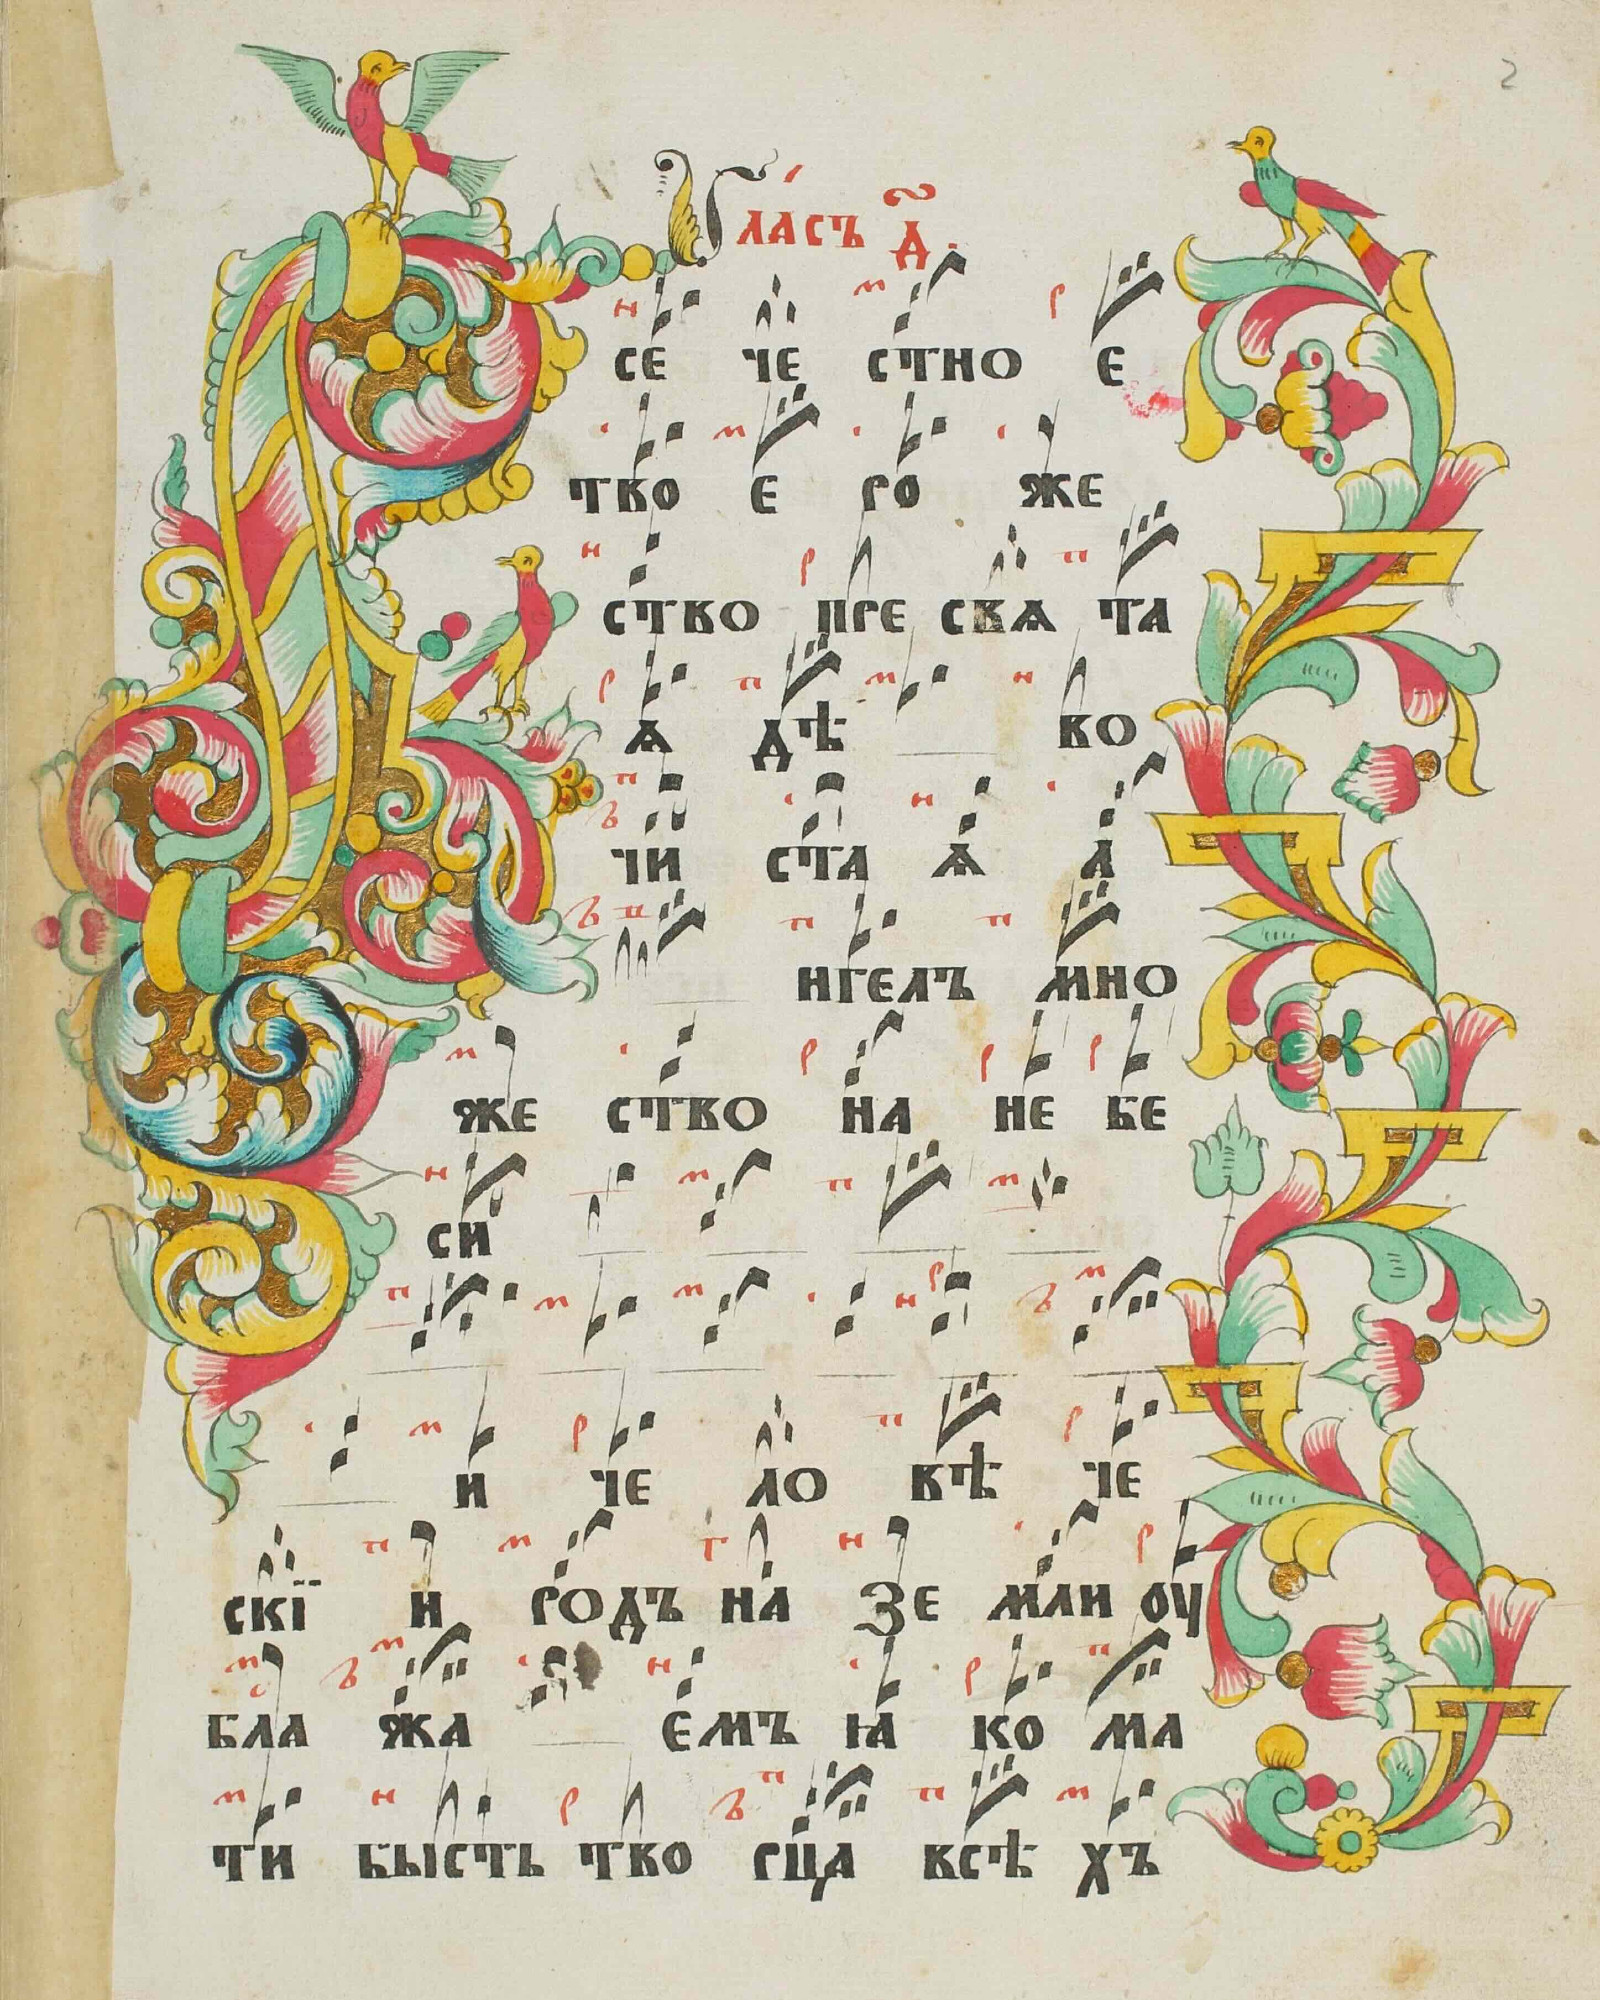 2
Гласъ д҃.
В
се че стно е
тво е го же
ство пре свѧ та
ѧ дѣ во
чи ста ѧ а
нгелъ мно
же ство на не бе
си
и че ло вѣ че
скїи родъ на зе мли оу
бла жа емъ ꙗ ко ма
ти бысть тво рца всѣ хъ